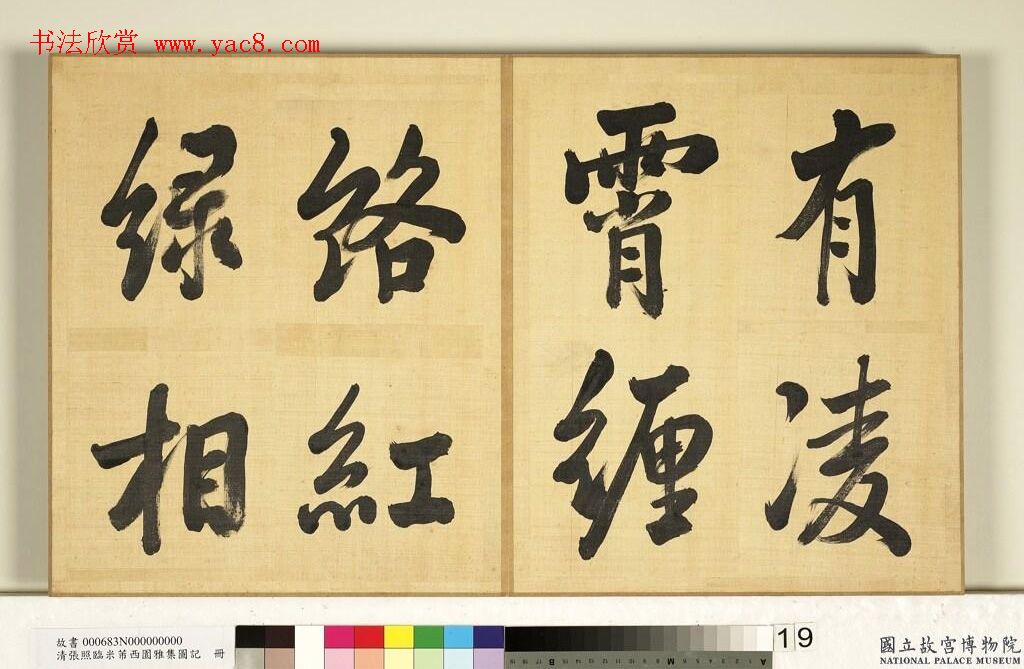 书法欣赏 www.yac8.com
有凌
霄纏
絡紅
緑相
故書 000683N000000000
清張照臨米芾西園雅集圖記 冊
19
國立故宮博物院
NATIONAL PALACE MUSEUM